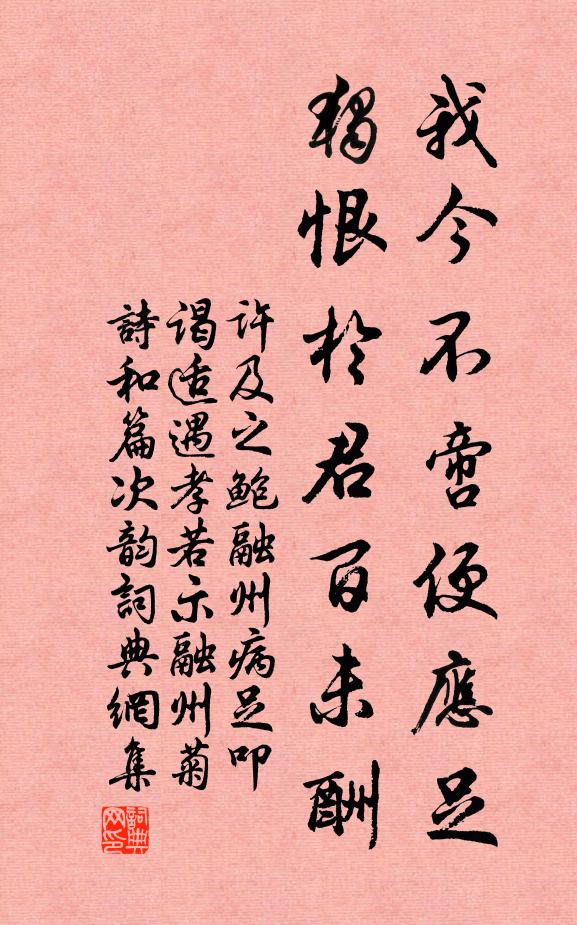 我今不啻便應足
獨恨於君百未酬
許及之鮑融州病足叩
謁适遇孝若示融州菊
詩和篇次韵詞典網集
詞典
网印